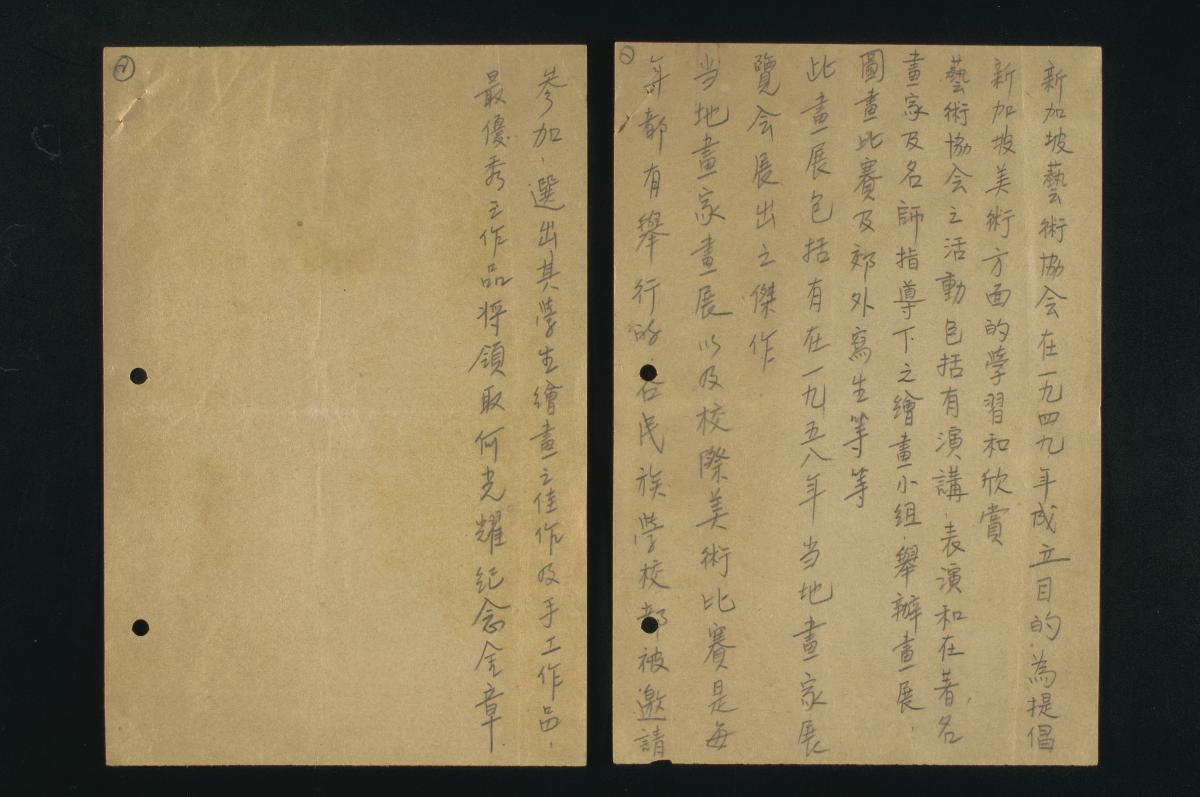 新加坡藝術協会在一九四九年成立目的.為提倡
新加坡美術方面的學習和欣賞
藝術協会之活動包括有演講.表演和在著名
畫家及名師指導下之繪畫小组.舉辦畫展.
圖畫比賽及郊外寫生等等
此畫展包括有在一九五八年当地畫家展
覽会展出之傑作
当地畫家畫展以及校際美術比賽是每
年都有舉行的.各民族學校都被邀請
参加.選出其學生繪畫之佳作及手工作品.
最優秀之作品将領取何光耀纪念金章.